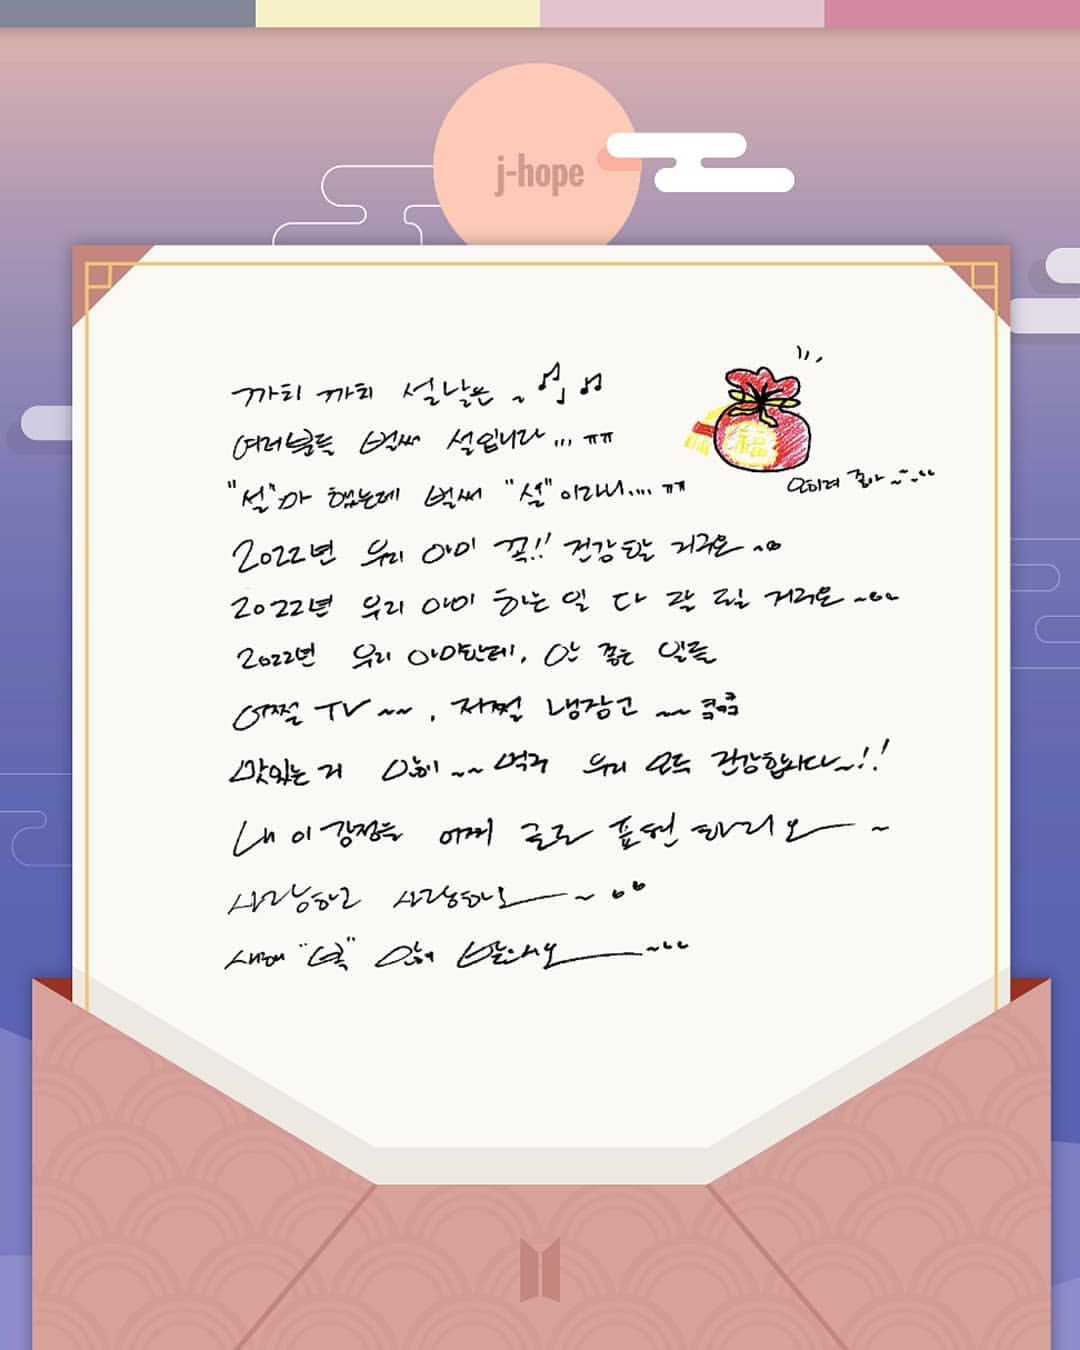 j-hope
까치 까치 설날은
여러분들 벌써 설입니다... ㅠㅠ
"설"마 했는데 벌써 "설"이라니.... ㅠㅠ
福
2022년 우리 아미 꼭!! 건강할 거구요~
2022년 우리 아미 하는 일 다 잘 될 거구요~
2022년 우리 아미한테, 안 좋은 일들
어쩔 TV~~, 저쩔 냉장고 ~~ 쿄쿄쿄
맛있는 거 많이~~ 먹구 우리 모두 건강합시다~!!
내 이 감정을 어찌 글로 표현하리오 ~
사랑하고 사랑하오 ~
새해 "복" 많이 받으시오 ~